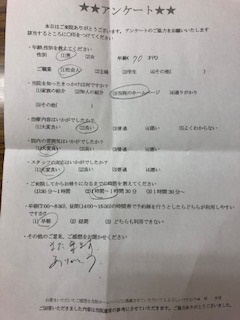 ★★アンケート★★
本日はご来院ありがとうございます。アンケートのご協力をお願いいたします
該当するところに○印をつけてください
・年齢、性別を教えてください
性別 ①男 ②女 年齢( 70 )才代
ご職業 ①社会人 ②主婦 ③学生 ④その他( )
・当院を知ったきっかけは何ですか?
①家族の紹介 ②知人の紹介 ③当院のホームページ ④通りがかり
⑤その他( )
・治療内容はいかがでしたか?
①大変良い ②良い ③普通 ④悪い ⑤よくわからない
・院内の雰囲気はいかがでしたか?
①大変良い ②良い ③普通 ④悪い
・スタッフの対応はいかがでしたか?
①大変良い ②良い ③普通 ④悪い
・ご来院してからお帰りになるまでの時間を教えてください
①30分~1時間 ②1時間~1時間30分 ③1時間30分~
①早朝 ②昼間 ③どちらも利用できない
・その他のご意見、ご感想をお聞かせください
また来ます
ありがとう